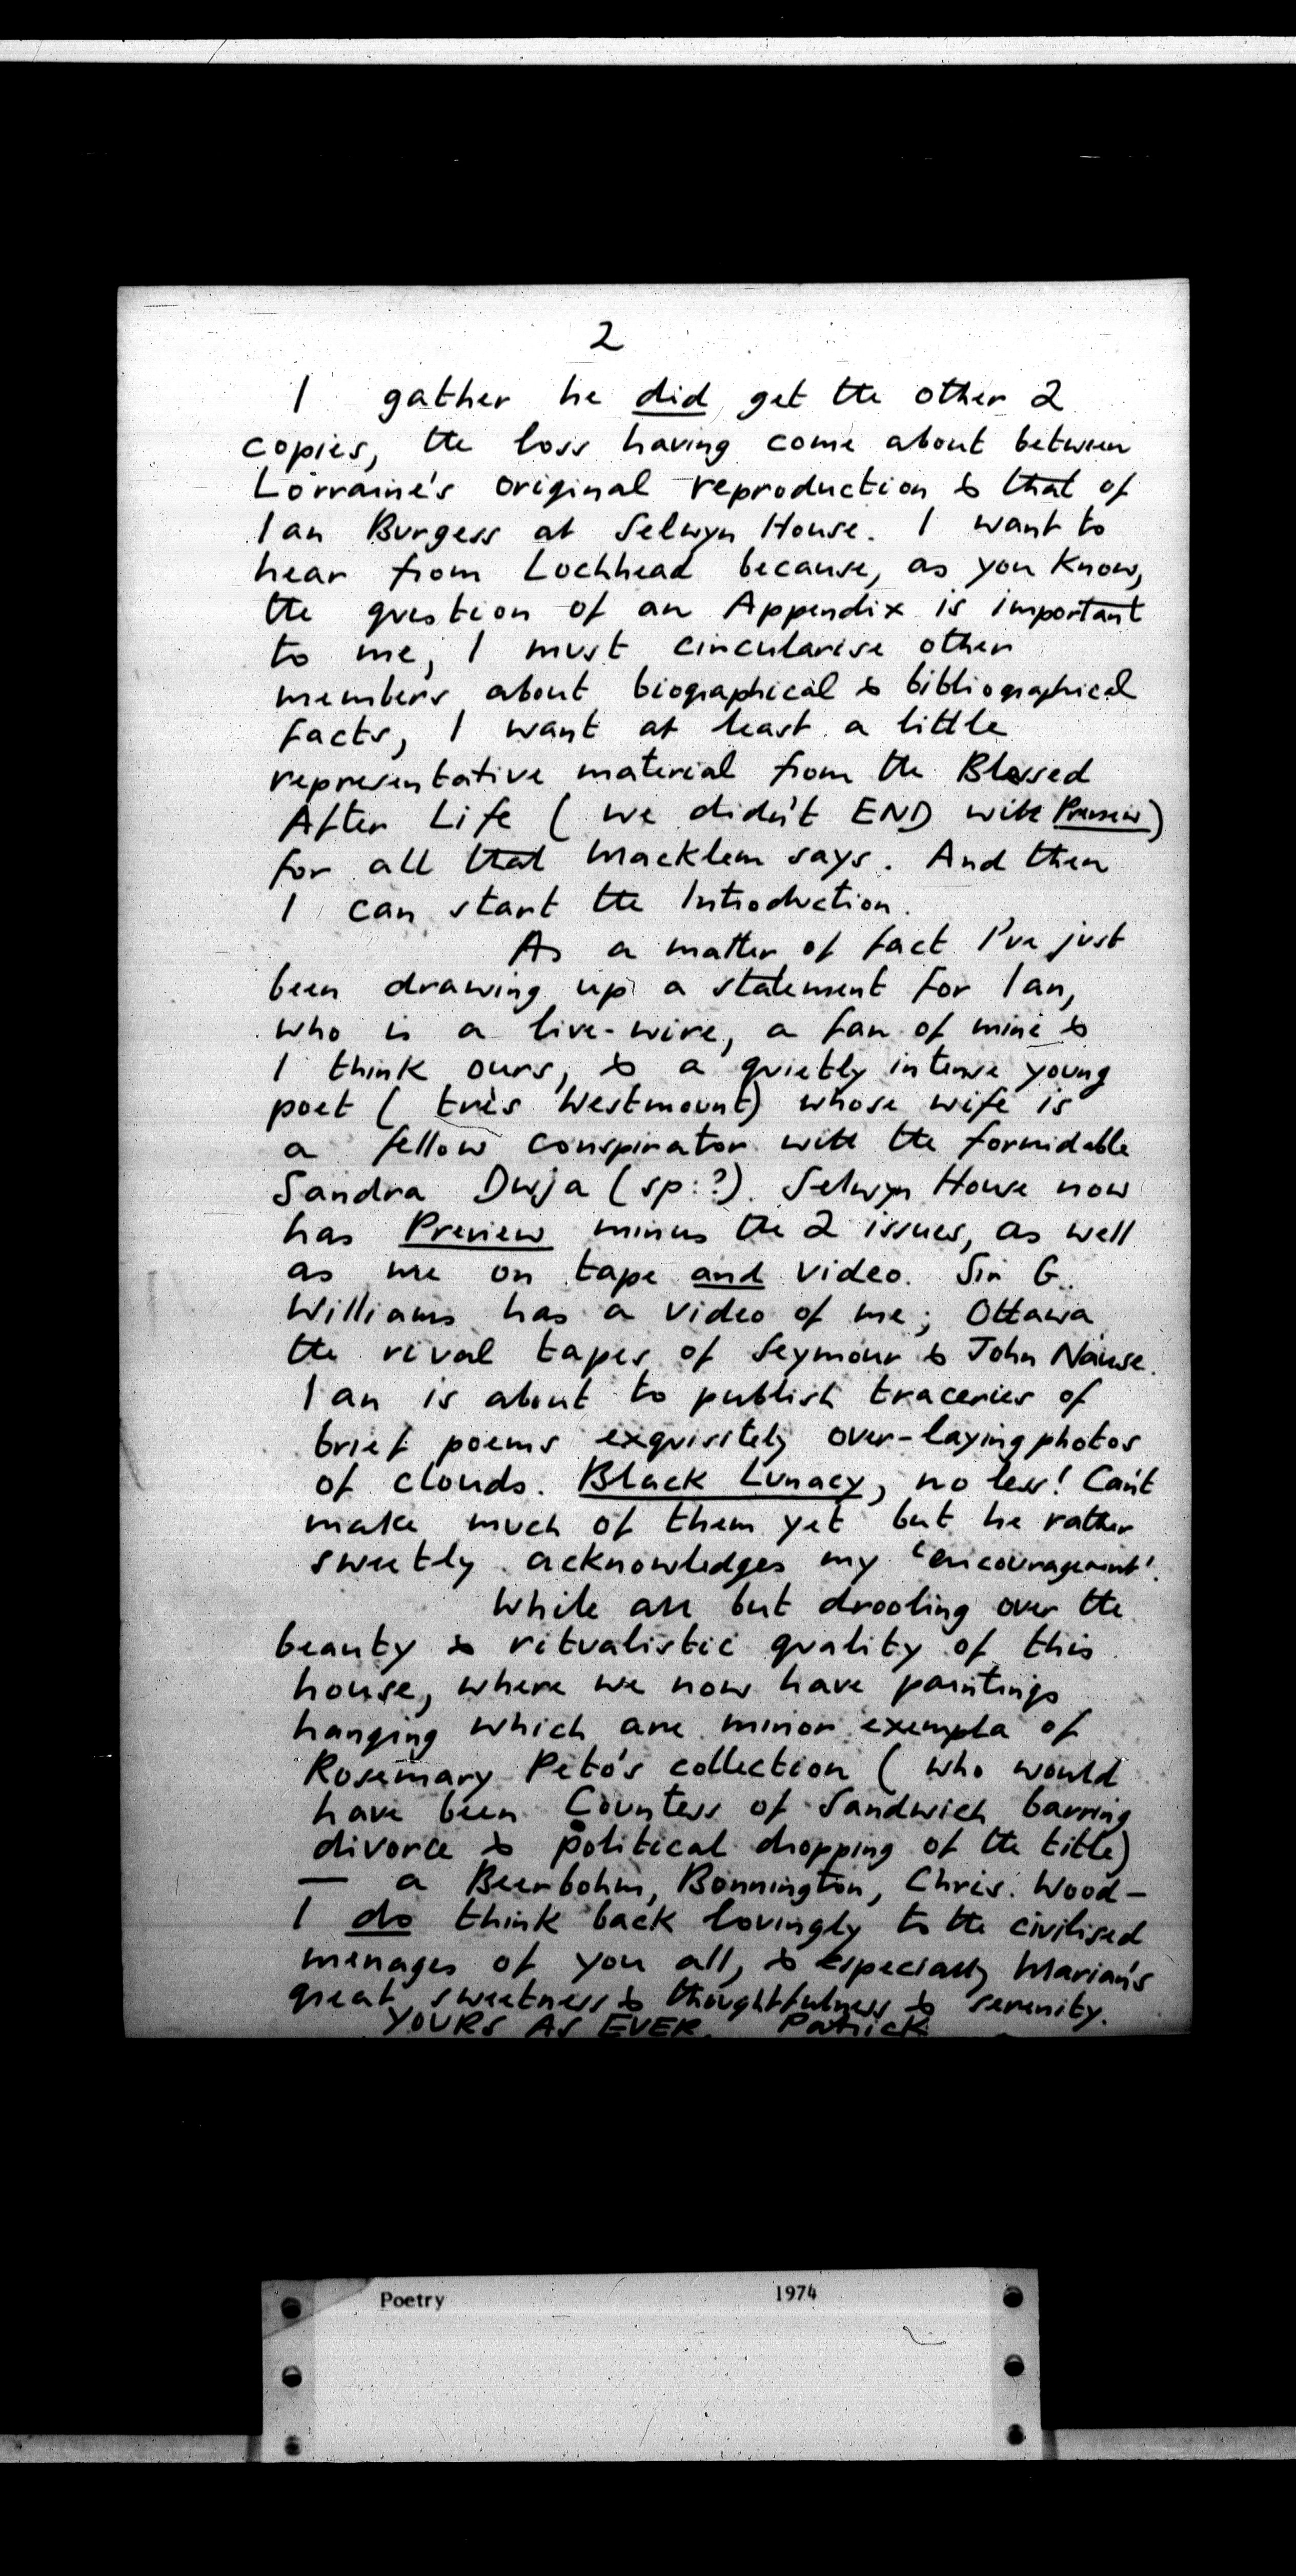 2
I gather he did get the other 2
copies, the loss having come about between
Lorraine's original reproduction & that of
Ian Burgess at Selwyn House. I want to
hear from Lochhead because, as you know,
the question of an Appendix is important
to me, I must circularise other
members about biographical & bibliographical
facts, I want at least a little
representative material from the Blessed
After Life ( we didn't END with Preview )
for all that Macklem says. And then
I can start the Introduction.
As a matter of fact I've just
been drawing up a statement for Ian,
who is a live-wire, a fan of mine &
I think ours, & a quietly intense young
poet ( très Westmount) whose wife is
a fellow conspirator with the formidable
Sandra Dwja (sp:?). Selwyn House now
has Preview minus the 2 issues, as well
as me on tape and video. Sir G.
Williams has a video of me; Ottawa
the rival tapes of Seymour & John Nause.
Ian is about to publish traceries of
brief poems exquisitely over-laying photos
of clouds. Black Lunacy, no less! Can't
make much of them yet but he rather
sweetly acknowledges my 'encouragement'.
While all but drooling over the
beauty & ritualistic quality of this
house, where we now have paintings
hanging which are minor exempla of
Rosemary Peto's collection ( who would
have been Countess of Sandwich barring
divorce & political dropping of the title)
— a Beerbohm, Bonnington, Chris. Wood —
I do think back lovingly to the civilised
menages of you all, & especially Marian's
great sweetness & thoughtfulness & serenity.
YOURS AS EVER, Patrick
Poetry 1974